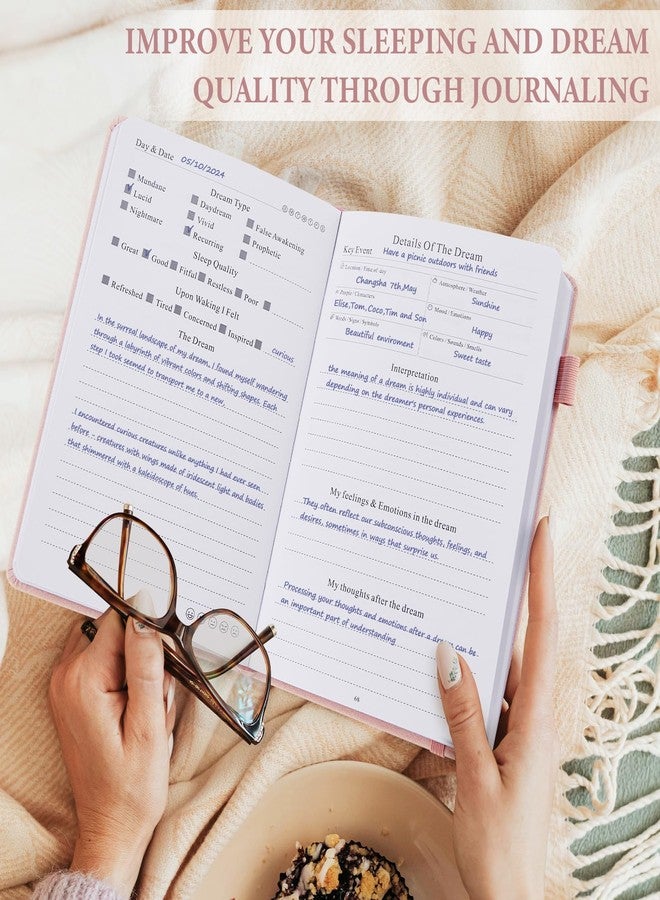 IMPROVE YOUR SLEEPING AND DREAM
QUALITY THROUGH JOURNALING
Day & Date 05/10/2024
Dream Type
Mundane
Daydream
False Awakening
Lucid
Vivid
Prophetic
Nightmare
Recurring
Sleep Quality
Great Good Fitful Restless Poor
Upon Waking I Felt
Refreshed Tired Concerned Inspired curious
The Dream
In the surreal landscape of my dream, I found myself wandering
through a labyrinth of vibrant colors and shifting shapes. Each
step I took seemed to transport me to a new,
I encountered curious creatures unlike anything I had ever seen
before - creatures with wings made of iridescent light and bodies
that shimmered with a kaleidoscope of hues.
Details Of The Dream
Key Event Have a picnic outdoors with friends
Location / Time of day
Changsha 7th,May
Atmosphere / Weather
Sunshine
People / Characters
Elise,Tom,Coco,Tim and Son
Mood / Emotions
Happy
Words / Signs / Symbols
Beautiful enviroment
Colors / Sounds / Smells
Sweet taste
Interpretation
the meaning of a dream is highly individual and can vary
depending on the dreamer's personal experiences.
My feelings & Emotions in the dream
They often reflect our subconscious thoughts, feelings, and
desires, sometimes in ways that surprise us.
My thoughts after the dream
Processing your thoughts and emotions after a dream can be
an important part of understanding